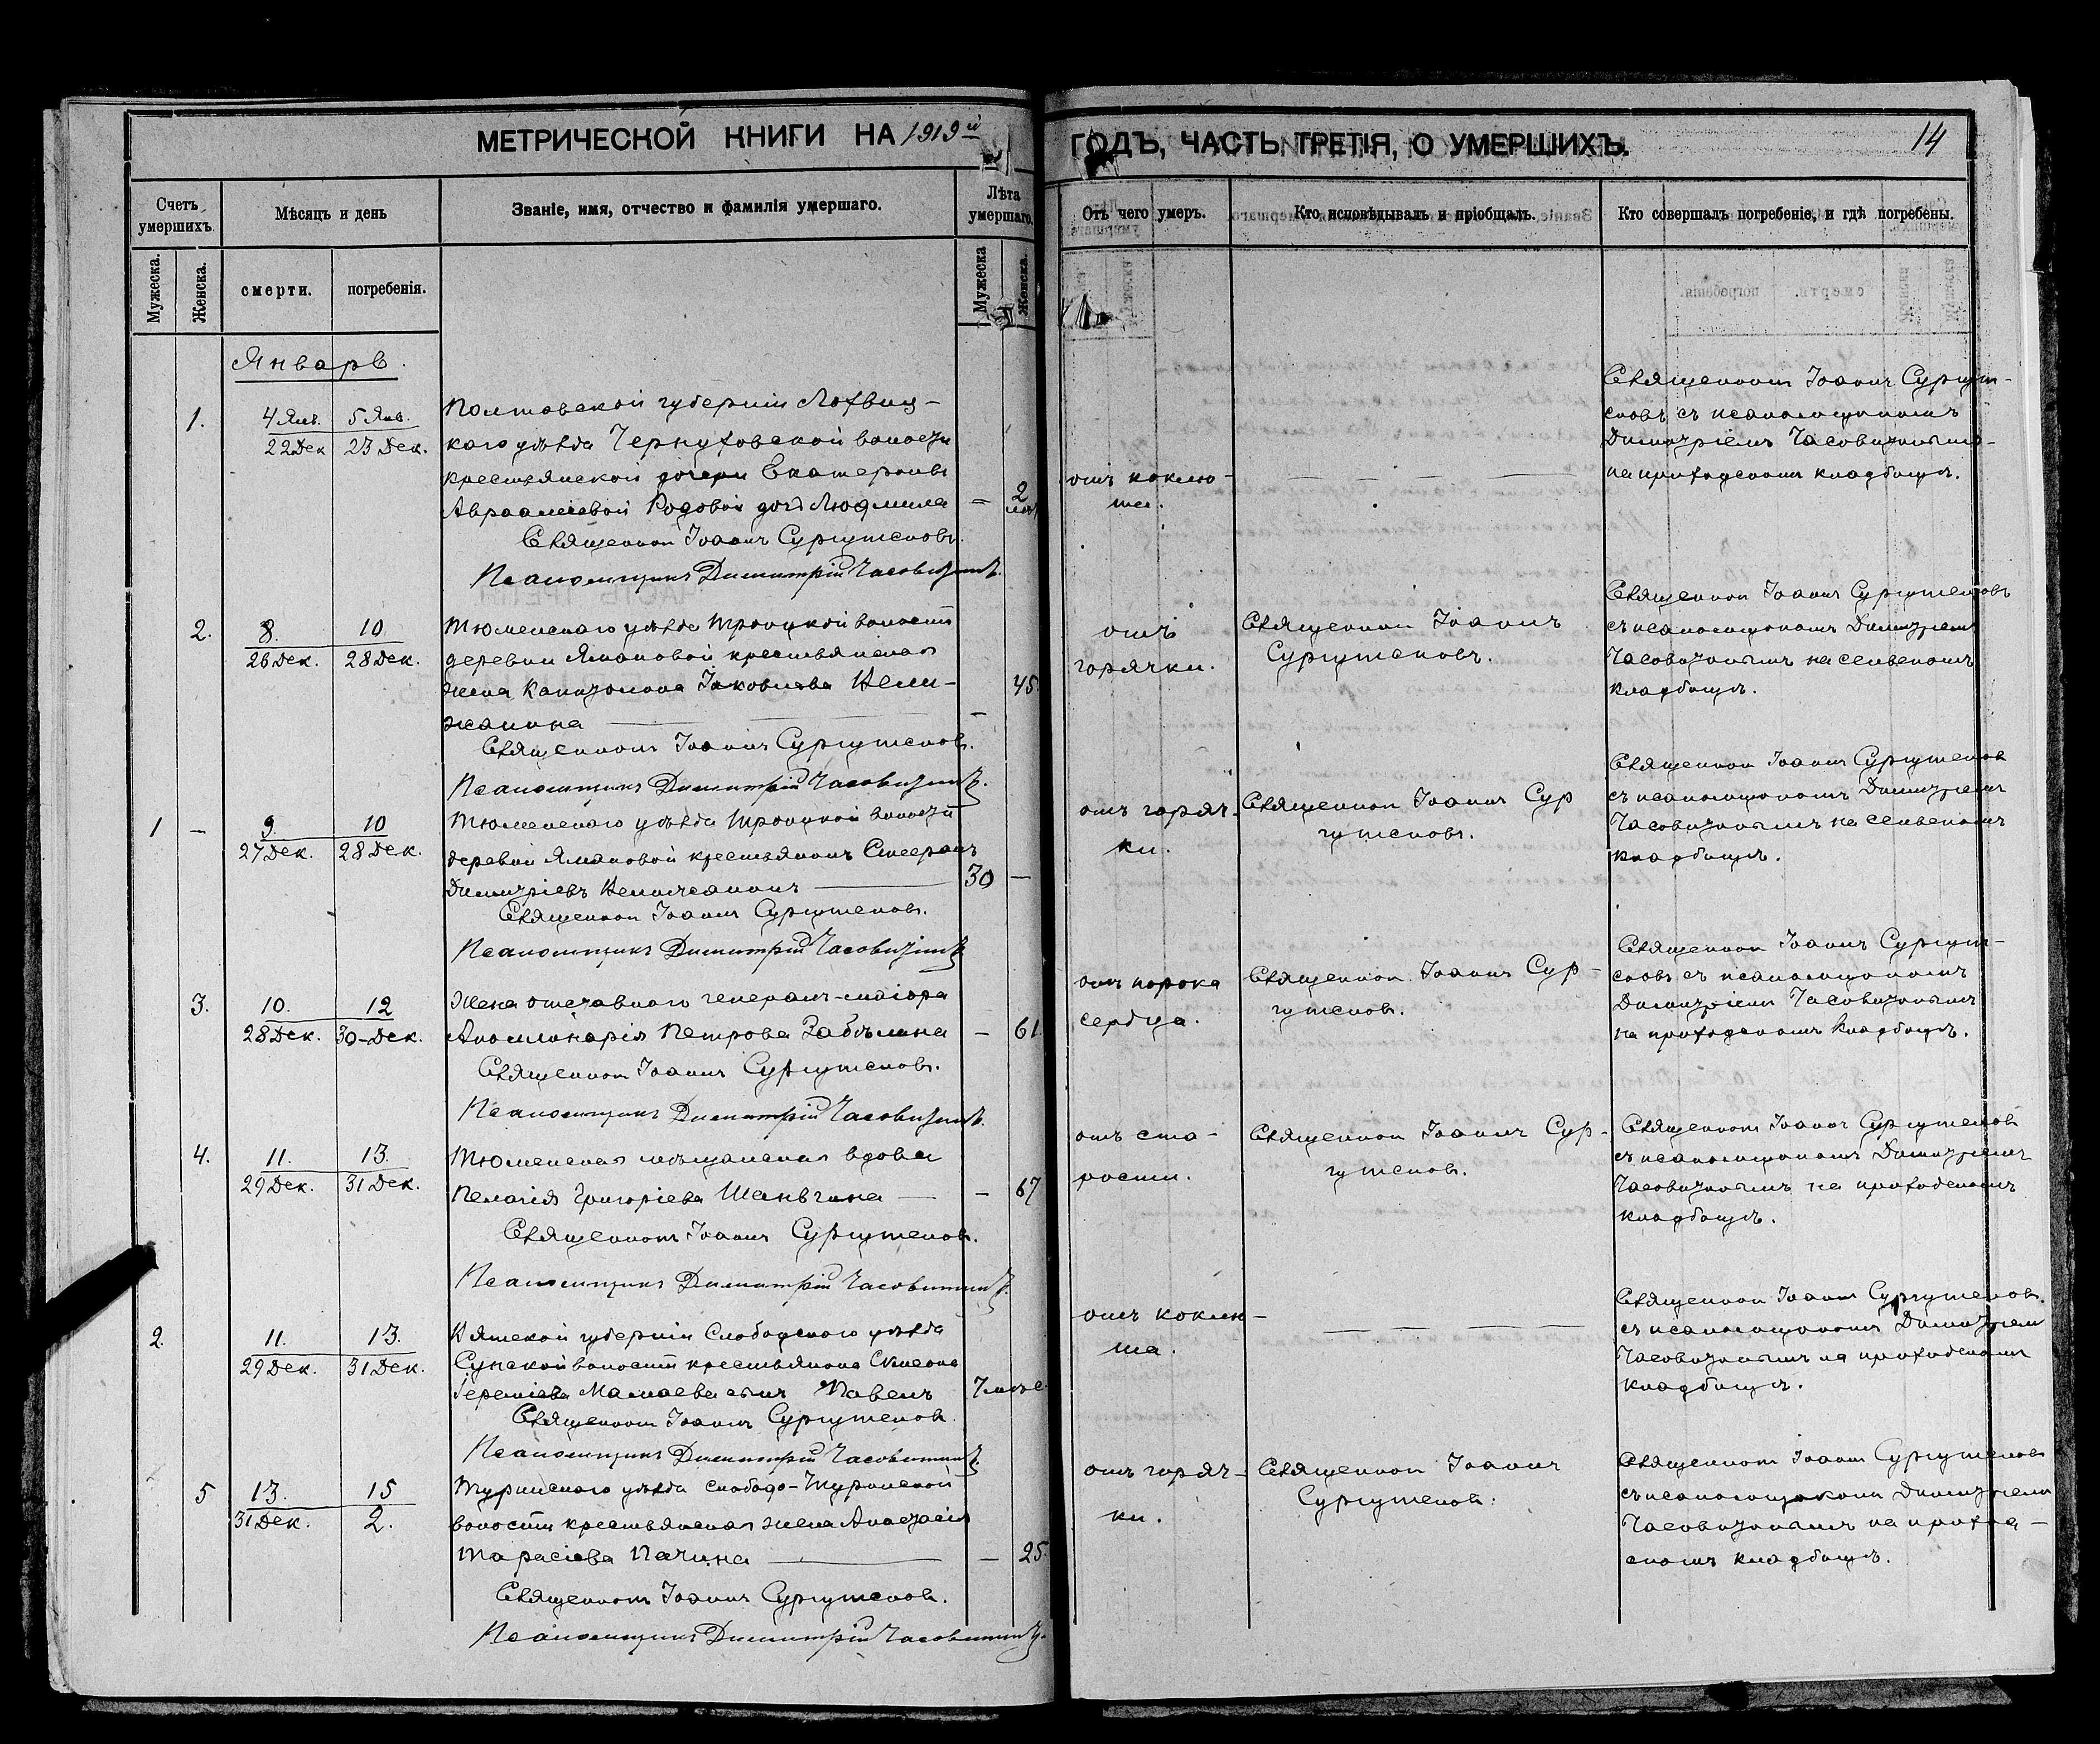 МЕТРИЧЕСКОЙ КНИГИ НА 1919й
ГОДЪ, ЧАСТЬ ТРЕТІЯ, О УМЕРШИХЪ.
14
Счетъ умершихъ.
Мѣсяцъ и день
Званіе, имя, отчество и фамилія умершаго.
Лѣта умершаго.
Отъ чего умеръ.
Кто исповѣдывалъ и пріобщалъ.
Кто совершалъ погребеніе, и гдѣ погребены.
Мужеска.
Женска.
смерти.
погребенія.
Мужеска
Женска.
Январь.
1.
4 Янв. 5 Янв.
22 Дек 23 Дек.
Полтавской губерніи Лохвиц-
каго уѣзда Чернуховской волости
крестьянской дочери Екатерины
Авраамовой Родовой дочь Людмила — 2
Священник Іоаннъ Сургутсковъ.
Псаломщикъ Димитрій Часовитинъ.
отъ коклю-
ша.
Священникъ Іоаннъ Сургут-
сковъ съ псаломщикомъ
Димитріемъ Часовитинымъ
на приходскомъ кладбищѣ.
2.
8. 10
26 Дек. 28 Дек.
Тюменскаго уѣзда Троицкой волости
деревни крестьянская
жена Капитолина Іаковлева
45.
Священникъ Іоаннъ Сургутсковъ.
Псаломщикъ Димитрій Часовитинъ.
отъ
горячки.
Священник Іоаннъ
Сургутсковъ.
Священник Іоаннъ Сургутсковъ
съ псаломщикомъ Димитріем
Часовитинымъ на сельскомъ
кладбищѣ.
1 —
9. 10
27 Дек. 28 Дек.
Тюменскаго уѣзда Троицкой волости
деревни крестьянинъ
Димитріевъ
30 —
Священник Іоаннъ Сургутсковъ.
Псаломщикъ Димитрій Часовитинъ
отъ горяч-
ки.
Священник Іоаннъ Сур
гутсковъ.
Священник Іоаннъ Сургутсков
съ псаломщикомъ Димитріем
Часовитинымъ на сельскомъ
кладбищѣ.
3.
10. 12
28 Дек. 30-Дек.
Жена отставного генералъ-маіора
Аполлинарія Петрова Забѣлина — 61.
Священник Іоаннъ Сургутсковъ.
Псаломщикъ Димитрій Часовитинъ.
отъ порока
сердца.
Священник Іоаннъ Сур-
гутсковъ.
Священник Іоаннъ Сургут-
сковъ съ псаломщикомъ
Димитріем Часовитинымъ
на приходскомъ кладбищѣ.
4.
11. 13.
29 Дек. 31 Дек.
Тюменская мѣщанская вдова
Пелагія Григоріева Шаньгина — 67
Священникъ Іоаннъ Сургутсковъ.
Псаломщикъ Димитрій Часовитинъ.
отъ ста-
рости.
Священник Іоаннъ Сур-
гутсковъ.
Священникъ Іоаннъ Сургутсков
съ псаломщикомъ Димитріемъ
Часовитинымъ на приходскомъ
кладбищѣ.
2.
11. 13.
29 Дек. 31 Дек.
Вятской губерніи Слободского уѣзда
Сунской волости крестьянина Симеона
Іереміева Мамаева сынъ Павелъ 7 мѣс
Священникъ Іоаннъ Сургутсков.
Псаломщикъ Димитрій Часовитинъ.
отъ коклю-
ша.
Священник Іоаннъ Сургутсков.
съ псаломщикомъ Димитріем
Часовитинымъ на приходскомъ
кладбищѣ.
5
13. 15
31 Дек. 2.
Туринскаго уѣзда Слободо-Туринской
волости крестьянская жена Анастасія
Тарасіева Пачина — 25.
Священникъ Іоаннъ Сургутсковъ.
Псаломщикъ Димитрій Часовитинъ.
отъ горяч-
ки.
Священник Іоаннъ
Сургутсков.
Священникъ Іоаннъ Сургутсков
съ псаломщикомъ Димитріем
Часовитинымъ на приход-
скомъ кладбищѣ.